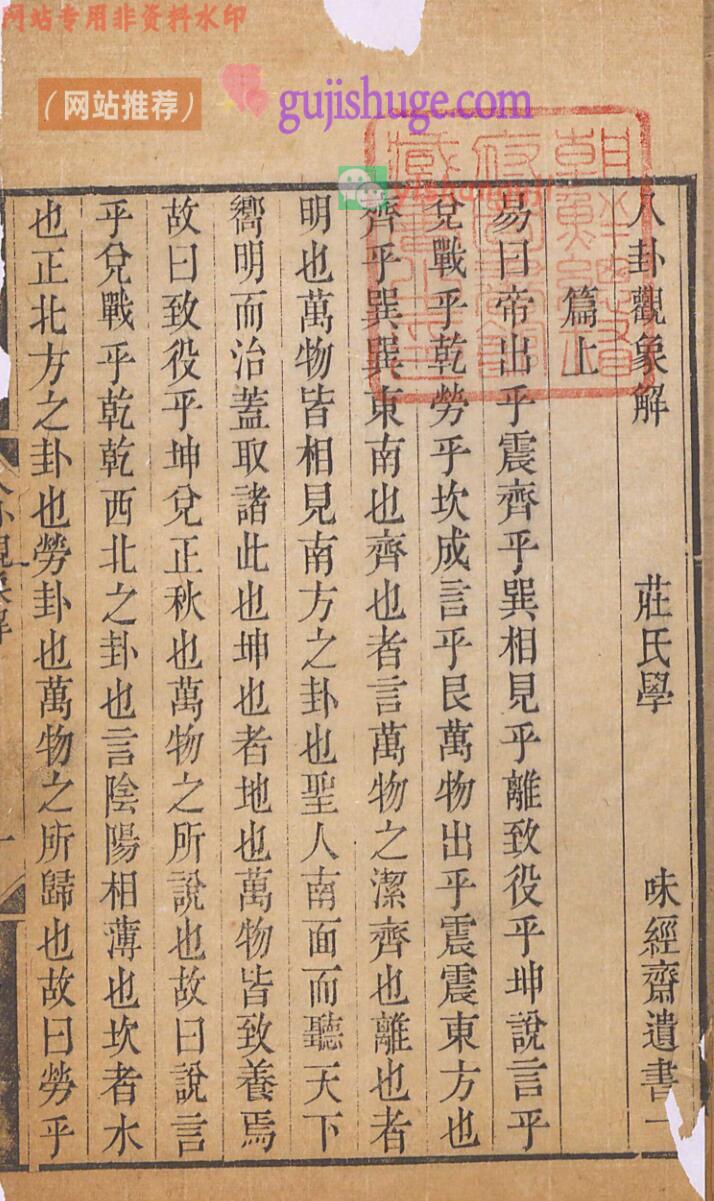 网站专用非资料水印
（网站推荐）
gujishuge.com
朝鮮總督
府圖書館
藏書之印
八卦觀象解 莊氏學 味經齋遺書一
篇上
易曰帝出乎震齊乎巽相見乎離致役乎坤說言乎
兌戰乎乾勞乎坎成言乎艮萬物出乎震震東方也
齊乎巽巽東南也齊也者言萬物之潔齊也離也者
明也萬物皆相見南方之卦也聖人南面而聽天下
嚮明而治蓋取諸此也坤也者地也萬物皆致養焉
故曰致役乎坤兌正秋也萬物之所說也故曰說言
乎兌戰乎乾乾西北之卦也言陰陽相薄也坎者水
也正北方之卦也勞卦也萬物之所歸也故曰勞乎